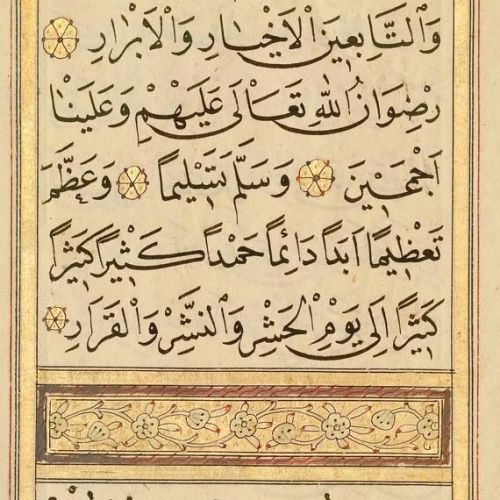 وَالتَّابِعِينَ الْاَخْيَارِ وَالْاَبْرَارِ
رِضْوَانُ اللهِ تَعَالَى عَلَيْهِمْ وَعَلَيْنَا
اَجْمَعِينَ وَسَلَّمَ تَسْلِيماً وَعَظَّمَ
تَعْظِيماً اَبَداً دَائِماً حَمْداً كَثِيراً كَثِيراً
كَثِيراً اِلَى يَوْمِ الْحَشْرِ وَالنَّشْرِ وَالْقَرَارِ